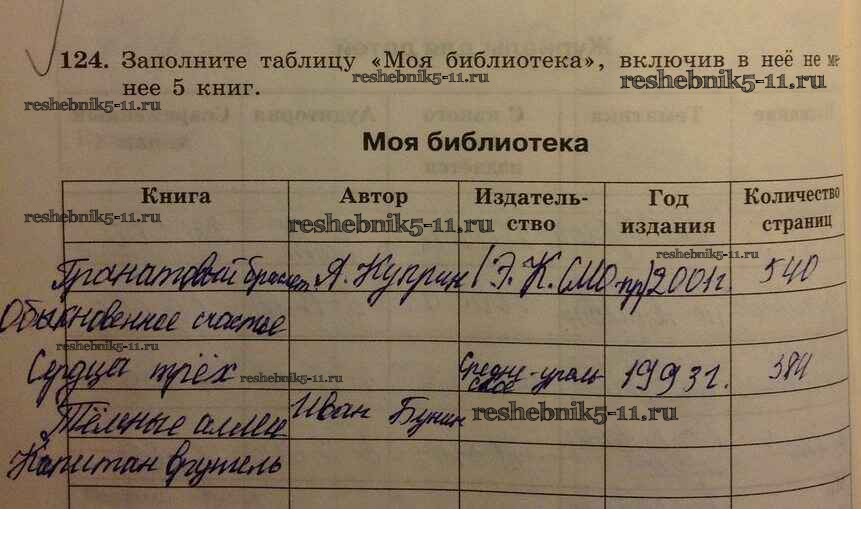 124. Заполните таблицу «Моя библиотека», включив в неё не ме-
нее 5 книг.
reshebnik5-11.ru
reshebnik5-11.ru
reshebnik5-11.ru
Моя библиотека
Книга Автор Издатель- Год Количество
ство издания страниц
reshebnik5-11.ru
reshebnik5-11.ru
reshebnik5-11.ru
Гранатовый браслет. А. Куприн (Э. К. СМО-пр) 2001г. 540
Обыкновенное счастье
reshebnik5-11.ru
Сердца трёх Средне-ураль 1993г. 384
ское
reshebnik5-11.ru
Тёмные аллеи Иван Бунин
reshebnik5-11.ru
Капитан врунгель